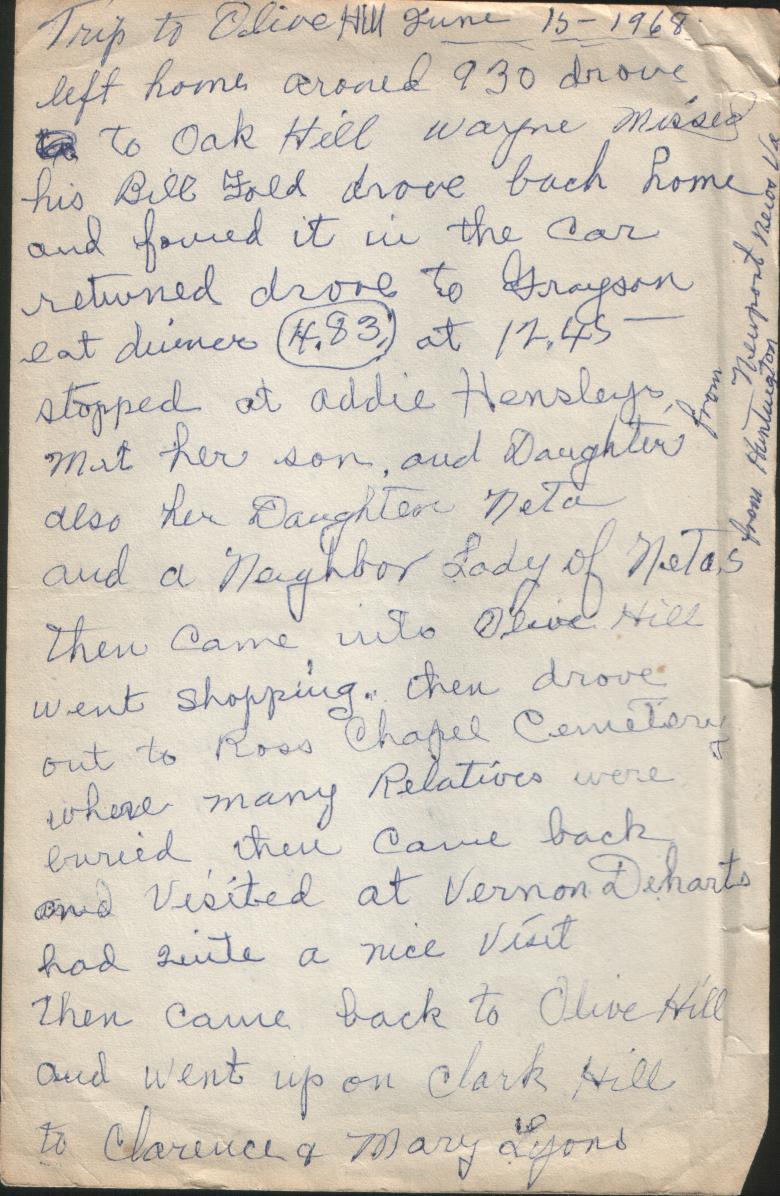 Trip to Olive Hill June 15-1968
left home around 930 drove
to Oak Hill Wayne Missed
his Bill Fold drove back home
and found it in the car
returned drove to Grayson
eat dinner 4.83 at 12.45 —
stopped at addie Hensleys
Met her son, and Daughter from
Newport News Va
from Huntington
also her Daughter Neta
and a Neighbor Lady of Netas
then came into Olive Hill
went shopping. then drove
out to Ross Chapel Cemetery
where many Relatives were
buried then came back
and Visited at Vernon Deharts
had quite a nice Visit
then came back to Olive Hill
and went up on Clark Hill
to Clarence & Mary Lyons